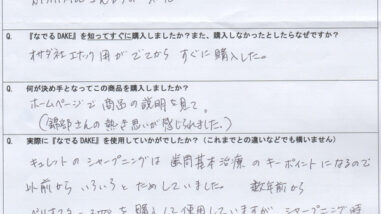 Q. 『なでるDAKE』を知ってすぐに購入しましたか?また、購入しなかったとしたらなぜですか?
オサダ社エナック用がでてから すぐに購入した。
Q. 何が決め手となってこの商品を購入しましたか?
ホームページで商品の説明を見て。
(錦部さんの熱き思いが感じられました。)
Q. 実際に『なでるDAKE』を使用していかがでしたか?(これまでとの違いなどでも構いません)
キュレットのシャープニングは歯周基本治療のキーポイントになるので
以前からいろいろとためしていました。 数年前から
を購入して使用していますが、シャープニング時